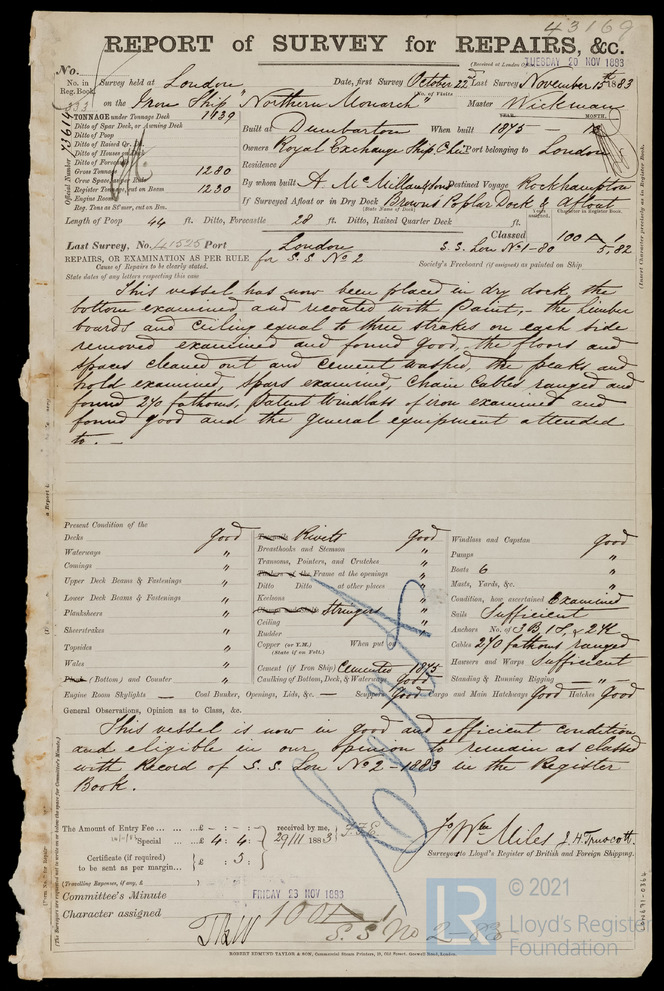 43169
REPORT of SURVEY for REPAIRS, &c.
(Received at London Office
TUESDAY 20 NOV 1883
No.
No. in Reg. Book. Survey held at London Date, first Survey October 22nd Last Survey November 15th 1883
(No. of Visits
333 on the Iron Ship "Northern Monarch" Master Wickman
TONNAGE under Tonnage Deck 1239
Ditto of Spar Deck, or Awning Deck
Ditto of Poop
Ditto of Raised Qr.
Ditto of House on
Ditto of Forecastle
Gross Tonnage 1280
Crew Space, as per Rule
Register Tonnage, cut on Beam 1230
Engine Room
Reg. Tons as St'mer, cut on Bm.
Official Number 73614
YEAR. MONTH.
Built at Dumbarton When built 1875
Owners Royal Exchange Ship Co. Lim Port belonging to London
Residence
By whom built A. McMillan & Son Destined Voyage Rockhampton
If Surveyed Afloat or in Dry Dock Browns Poplar Dock & Afloat
(State Name of Dock)
Length of Poop 44 ft. Ditto, Forecastle 28 ft. Ditto, Raised Quarter Deck ft.
Years assigned. Character in Register Book.
Classed 100 A 1
Last Survey, No. 41525 Port London S. S. Lon No 1-80 5,82
REPAIRS, OR EXAMINATION AS PER RULE for S. S. No 2
Cause of Repairs to be clearly stated.
Society's Freeboard (if assigned) as painted on Ship
State dates of any letters respecting this case
This vessel has now been placed in dry dock, the
bottom examined and recoated with Paint, - the limber
boards and ceiling equal to three strakes on each side
removed examined and found good, - the floors and
spaces cleaned out and cement washed, the peaks and
hold examined, spars examined, Chain Cables ranged and
found 270 fathoms, Patent Windlass of iron examined and
found good and the general equipment attended
to. —
Present Condition of the
Decks Good
Waterways "
Comings "
Upper Deck Beams & Fastenings "
Lower Deck Beams & Fastenings "
Planksheers "
Sheerstrakes "
Topsides "
Wales "
Plank (Bottom) and Counter "
Engine Room Skylights — Coal Bunker, Openings, Lids, &c. — Scuppers Good Cargo and Main Hatchways Good Hatches Good
Treenails Rivets Good
Breasthooks and Stemson "
Transoms, Pointers, and Crutches "
Timbers of the Frame at the openings "
Ditto Ditto at other places "
Keelsons "
Stringers "
Ceiling "
Rudder "
Copper (or Y.M.) When put on
(State if on Felt.)
Cement (if Iron Ship) Cemented 1875
Caulking of Bottom, Deck, & Waterways Good
Windlass and Capstan Good
Pumps "
Boats 6 "
Masts, Yards, &c. "
Condition, how ascertained Examined
Sails Sufficient
Anchors No. of 3 B, 1 S, & 2 K
Cables 270 fathoms ranged
Hawsers and Warps Sufficient
Standing & Running Rigging — " —
General Observations, Opinion as to Class, &c.
This vessel is now in good and efficient condition
and eligible in our opinion to remain as classed
with Record of S. S. Lon No 2 - 1883 in the Register
Book.
The Amount of Entry Fee ... £ - : - : received by me,
Special ... £ 4 : 4 : 29/11 1883
Certificate (if required) to be sent as per margin... £ : 3 :
(Travelling Expenses, if any, £ )
Wm Miles J. H. Truscott
Surveyors to Lloyd's Register of British and Foreign Shipping.
Committee's Minute FRIDAY 23 NOV 1883
Character assigned 100 A 1
S. S. No 2-83
ROBERT EDMUND TAYLOR & SON, Commercial Steam Printers, 19, Old Street, Goswell Road, London.
LON671-0366
LR
© 2021
Lloyd's Register
Foundation